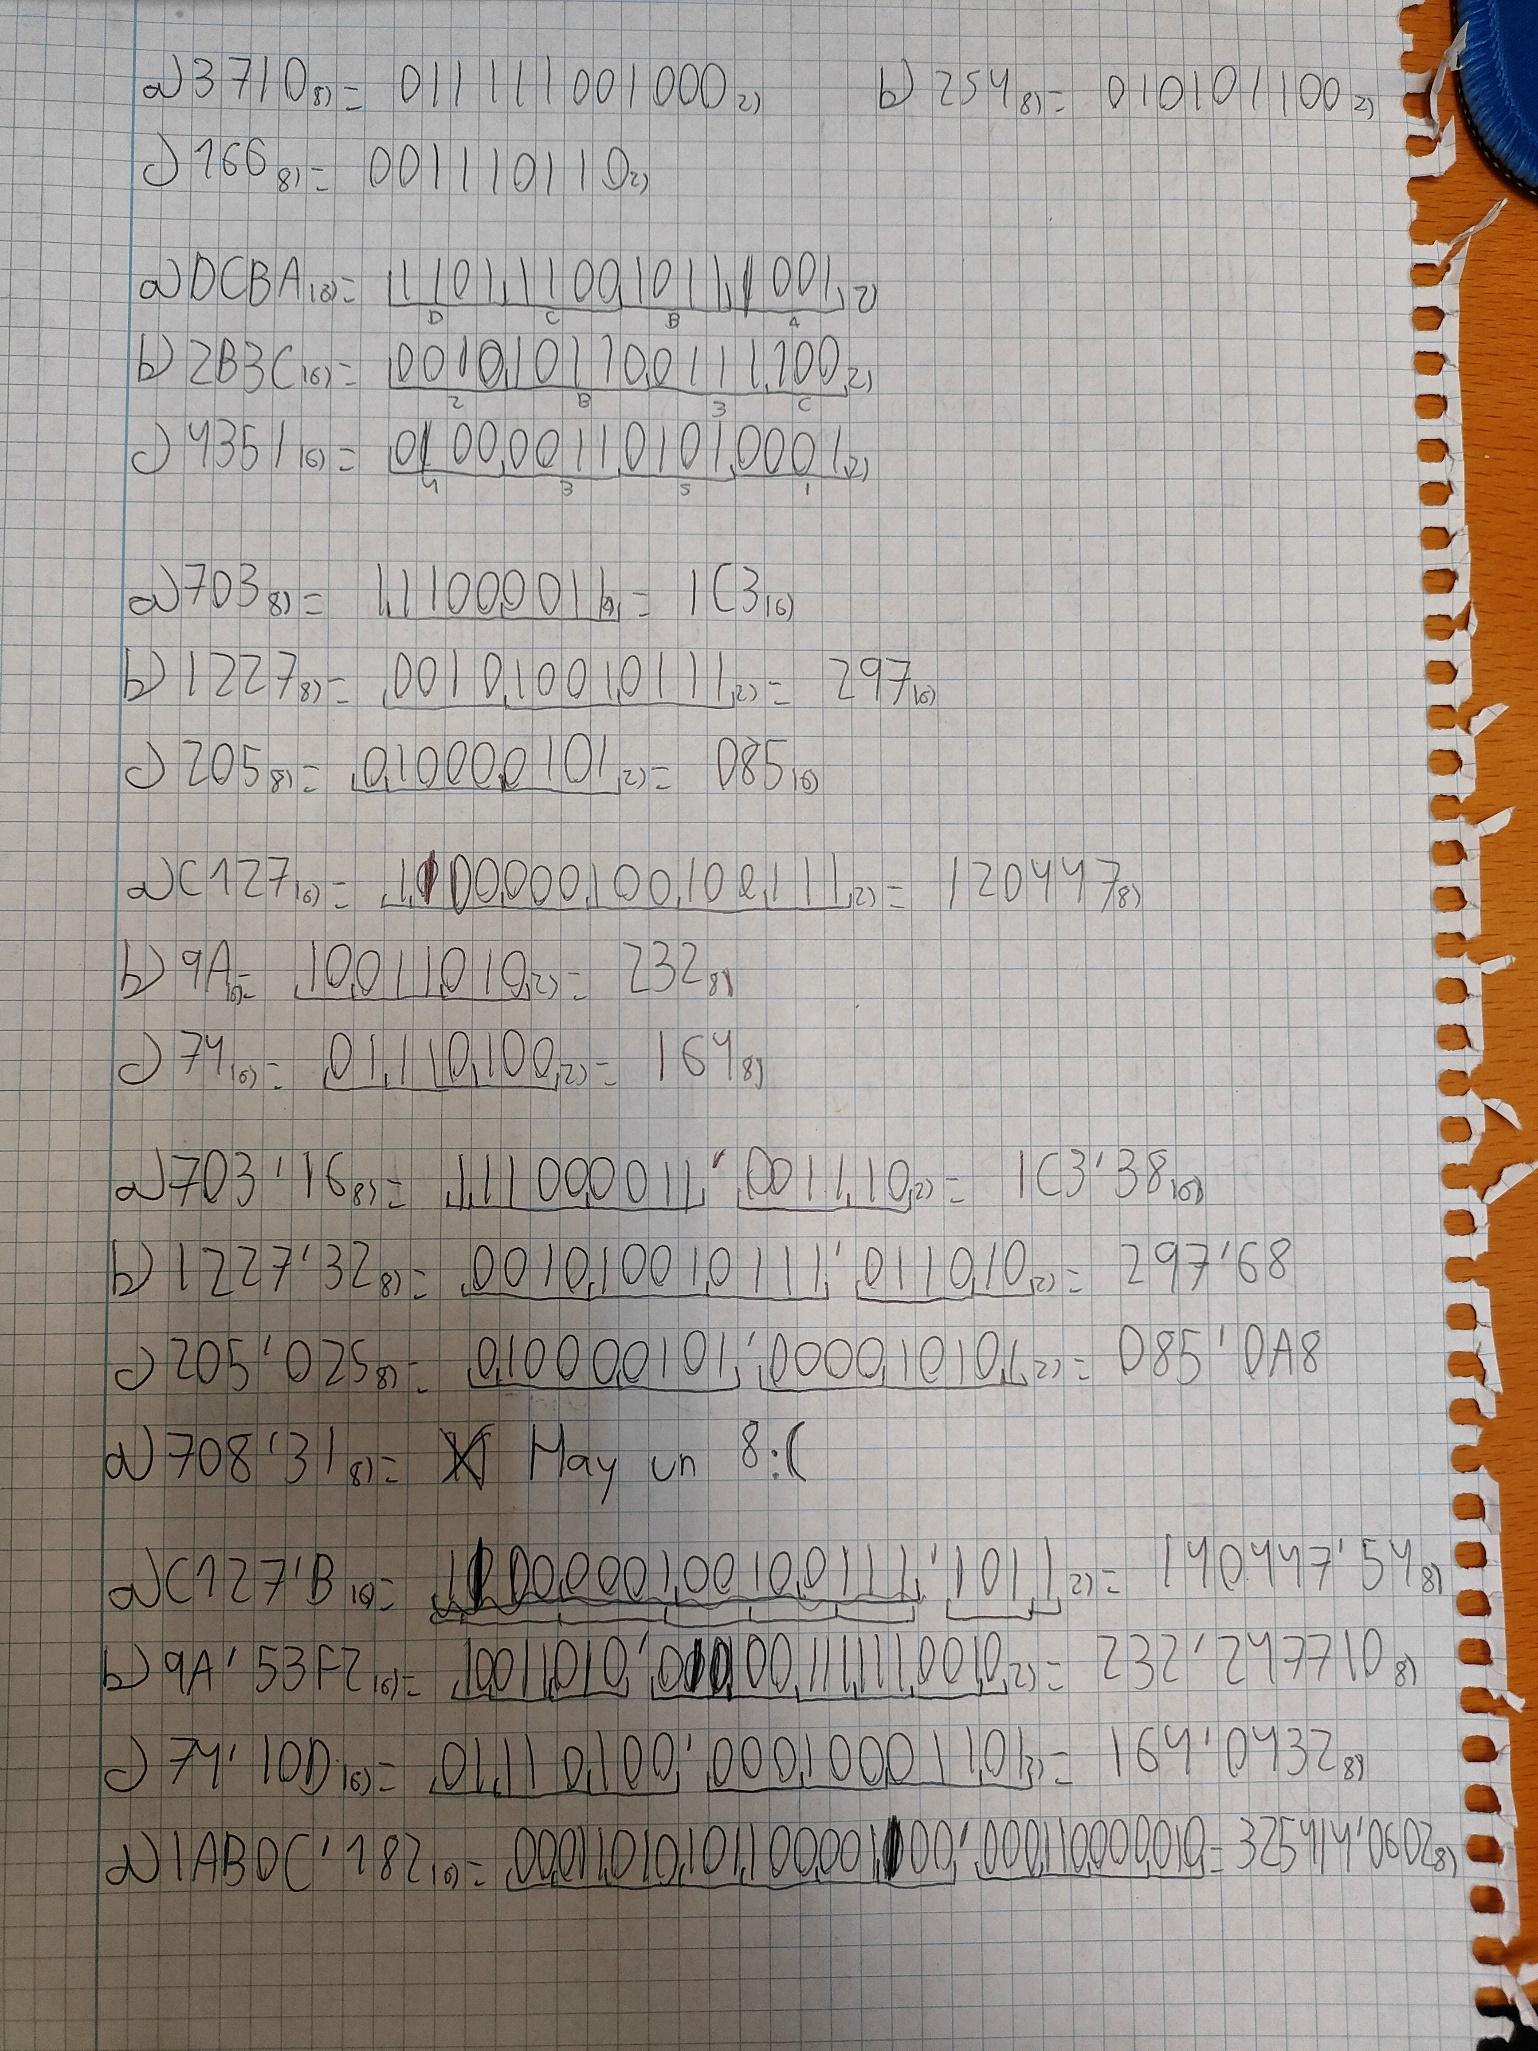 a) 3710 8) = 011111001000 2) b) 254 8) = 010101100 2)
c) 166 8) = 001110110 2)
a) DCBA 16) = 1101,1100,1011,1001, 2)
D C B A
b) 2B3C 16) = 0010,1011,0011,1,100, 2)
2 B 3 C
c) 4351 16) = 0100,0011,0101,0001, 2)
4 3 5 1
a) 703 8) = 1,1100,0011, 2) = 1C3 16)
b) 1227 8) = 0010,1001,0111, 2) = 297 16)
c) 205 8) = 0,1000,0101, 2) = 085 16)
a) C127 16) = 1,100,000,100,100,111, 2) = 120447 8)
b) 9A 16) = 10,011,010, 2) = 232 8)
c) 74 16) = 01,110,100, 2) = 164 8)
a) 703'16 8) = 1,1100,0011,'0011,10, 2) = 1C3'38 16)
b) 1227'32 8) = 0010,1001,0111,'0110,10, 2) = 297'68
c) 205'025 8) = 0,1000,0101,'0000,1010,1, 2) = 085'0A8
d) 708'31 8) = Hay un 8:(
a) C127'B 16) = 1100000100100111'1011 2) = 140447'54 8)
b) 9A'53F2 16) = 10011010'0101001111110010 2) = 232'247710 8)
c) 74'10D 16) = 01,110,100,'000,100,001,101 2) = 164'0432 8)
d) 1AB0C'182 16) = 00,011,010,101,100,001,100,'000,110,000,010, = 325414'0602 8)